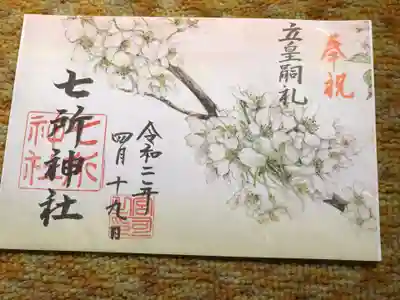 奉祝
立皇嗣礼
令和二年
四月十九日
七所神社
七所
神社